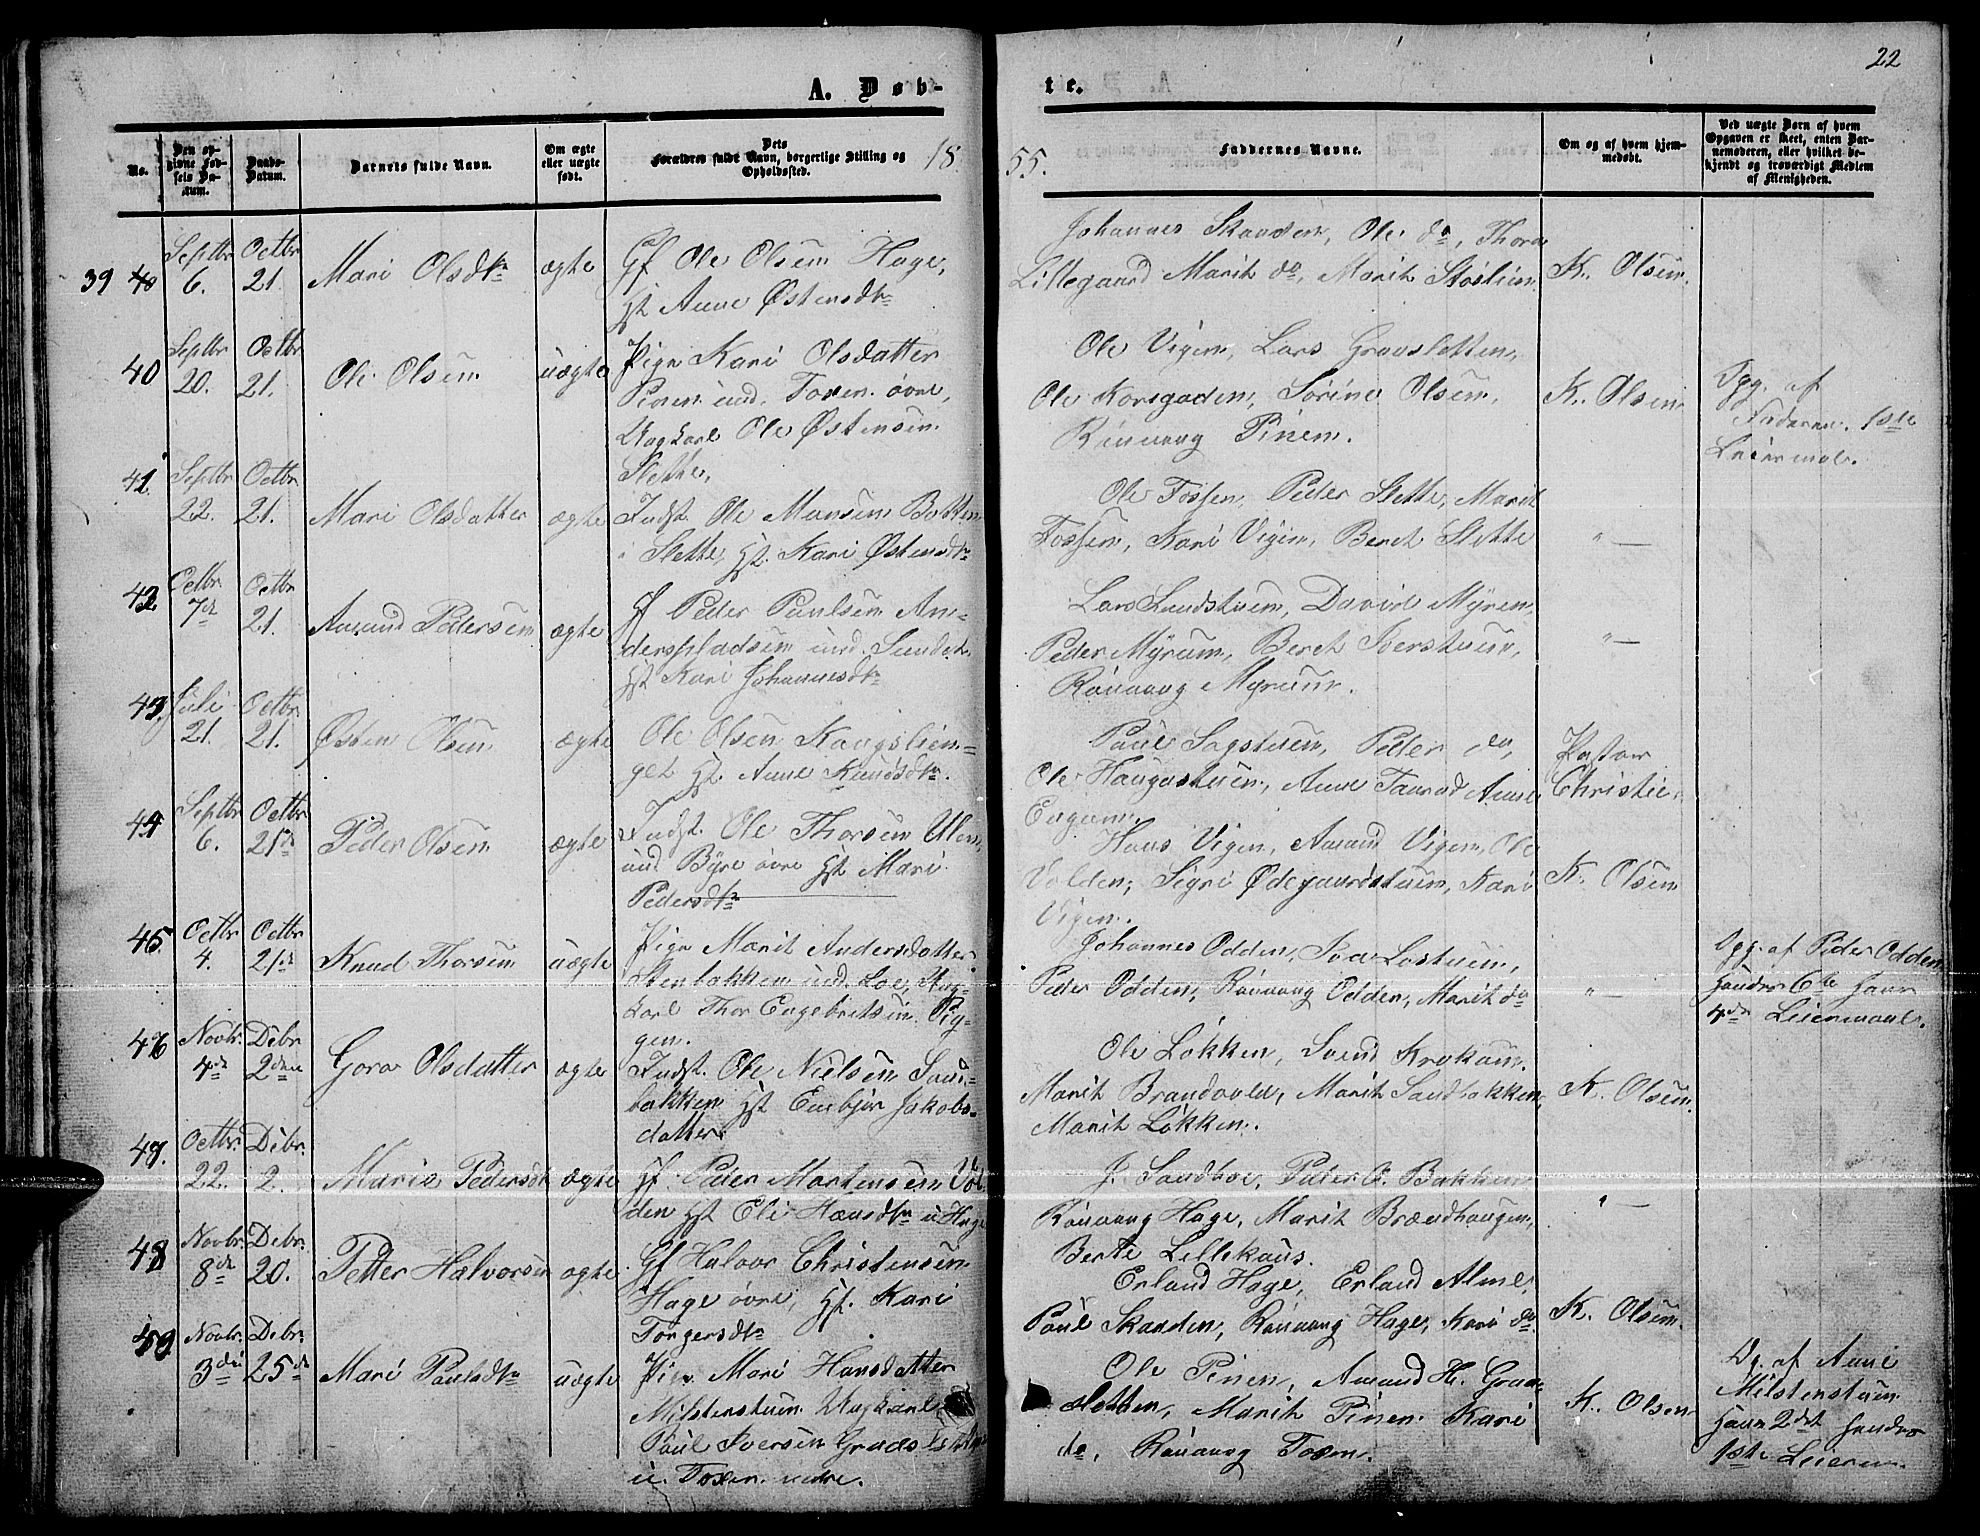 22
A. Døb-
te.
No.
Den op-
givne Fød-
sels Da-
tum.
Daabs-
Datum.
Barnets fulde Navn.
Om ægte
eller uægte
født.
Dets
Forældres fulde Navn, borgerlige Stilling og
Opholdssted.
18
55.
Faddernes Navne.
Om og af hvem hjem-
medøbt.
Ved uægte Børn af hvem
Opgaven er skeet, enten Bar-
nemoderen, eller hvilket be-
kjendt og troværdigt Medlem
af Menigheden.
39 40 Septbr 6. Octbr 21. Mari Olsdtr ægte
Gf Ole Olsen Hage,
Hst Anne Østensdtr
Johannes Skanden, Ole do, Thora
Lillegaard Marit do, Marit Stöslien
K. Olsen.
40 Septbr 20. Octbr 21. Ole Olsen uægte
Pige Kari Olsdatter
Pinen und. Toxen øvre,
Ungkarl Ole Østensen
Slette.
Ole Vigen, Lars Gravsletten,
Ole Korsgaden, Sörine Olsen,
Rönnaug Pinen.
K. Olsen
Opg. af
Faderen. 1ste
Leiermol.
41. Septbr 22. Octbr 21. Mari Olsdatter ægte
Indst. Ole Monsen Botten
i Slette, Hst. Kari Østensdtr
Ole Fossen, Peder Slette, Marit
Fossen, Kari Vigen, Beret Slette
" —
42 Octbr 7de Octbr 21. Amund Pedersen ægte
Gf Peder Paulsen An-
derspladsen und. Sundet,
Hst Kari Johannesdtr
Lars Sundstuen, David Myren,
Peder Myrum, Beret Iverstuen,
Rönnaug Myrum.
" —
43. Juli 21. Octbr 21. Østen Olsen ægte
Ole Olsen Kongslien-
get Hst. Anne Knudsdtr.
Paul Sagstuen, Peder do,
Ole Haugastuen, Anne Taarud Anne
Engum.
Pastor
Christie.
44 Septbr 6. Octbr 21de Peder Olsen ægte
Indst. Ole Thorsen Ulen
und Byre øvre Hst Mari
Pedersdtr
Hans Vigen, Amund Vigen, Ole
Volden, Sigri Ødegaardstuen, Kari
Vigen.
K. Olsen
45. Octbr 4. Octbr 21de Knud Thorsen uægte
Pige Marit Andersdatter
Stenbakken und. Loe, Ung-
karl Thor Engebretsen Pig-
gen.
Johannes Odden, Iva Lostuen,
Peder Odden, Rönnaug Odden, Marit do
" —
Opg. af Peder Odden
Hendes 6te Hans
4de Leiermaal.
46 Novbr. 4de Debr 2den Gora Olsdatter ægte
Indst. Ole Nielsen San-
bakken Hst Embjör Jakobs-
datter
Ole Lökken, Svend Krokum.
Marit Brandvold, Marit Sandbakken,
Marit Lökken.
K. Olsen.
47. Octbr 22. Debr. 2. Marie Pedersdtr ægte
Gf. Peder Mortensen Vol-
den Hst Eli Hansdtr u Hage
J. Sandboe, Peder O. Bakken
Rönnaug Hage, Marit Brændhaugen,
Berte Lillekaus.
" —
48 Novbr. 8de Debr. 20. Petter Halvorsen ægte
Gf Halvor Christensen
Hage øvre, Hst. Kari
Torgersdtr
Erland Hage, Erland Alme,
Paul Skanden, Rönnaug Hage, Kari do
K. Olsen.
49 Novbr. 3die Debr. 25de Mari Paulsdtr uægte
Pige Mari Hansdatter
Milstenstuen Ungkarl
Paul Iversen Gravsletten
u. Toxen nedre.
Ole Pinen, Amund H. Grav-
sletten, Marit Pinen Kari
do, Rönnaug Toxen.
K. Olsen
Og. af Anne
Milstenstuen
Hans 2det Hendes
1ste Leierm.